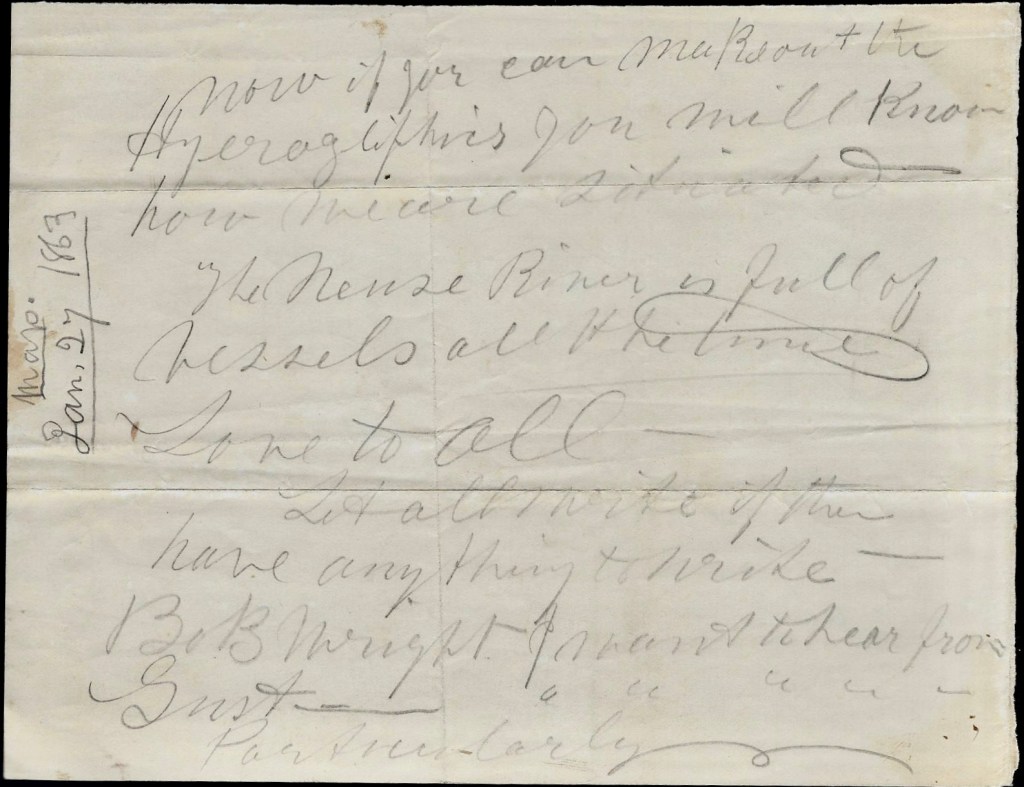 Now if you can makeout the
Hyerogliphics you will know
how we are situated
The Neuse River is full of
vessels all the time
Love to all —
Let all write if they
have anything to write —
Bob Wright I want to hear from
Gust — " " " " "
Particularly
Mayo.
Jan, 27 1863